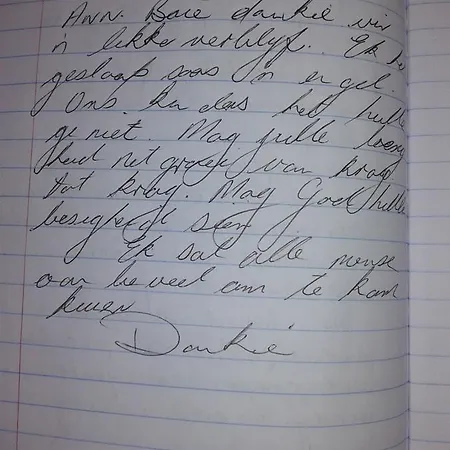 Ann. Baie dankie vir
'n lekker verblyf. Ek he
geslaap soos 'n engel.
Ons kinders het hulle
geniet. Mag julle besig
heid net groei van krag
tot krag. Mag God hulle
besigheid seën
Ek sal alle mense
aan beveel om te kom
kuier
Dankie